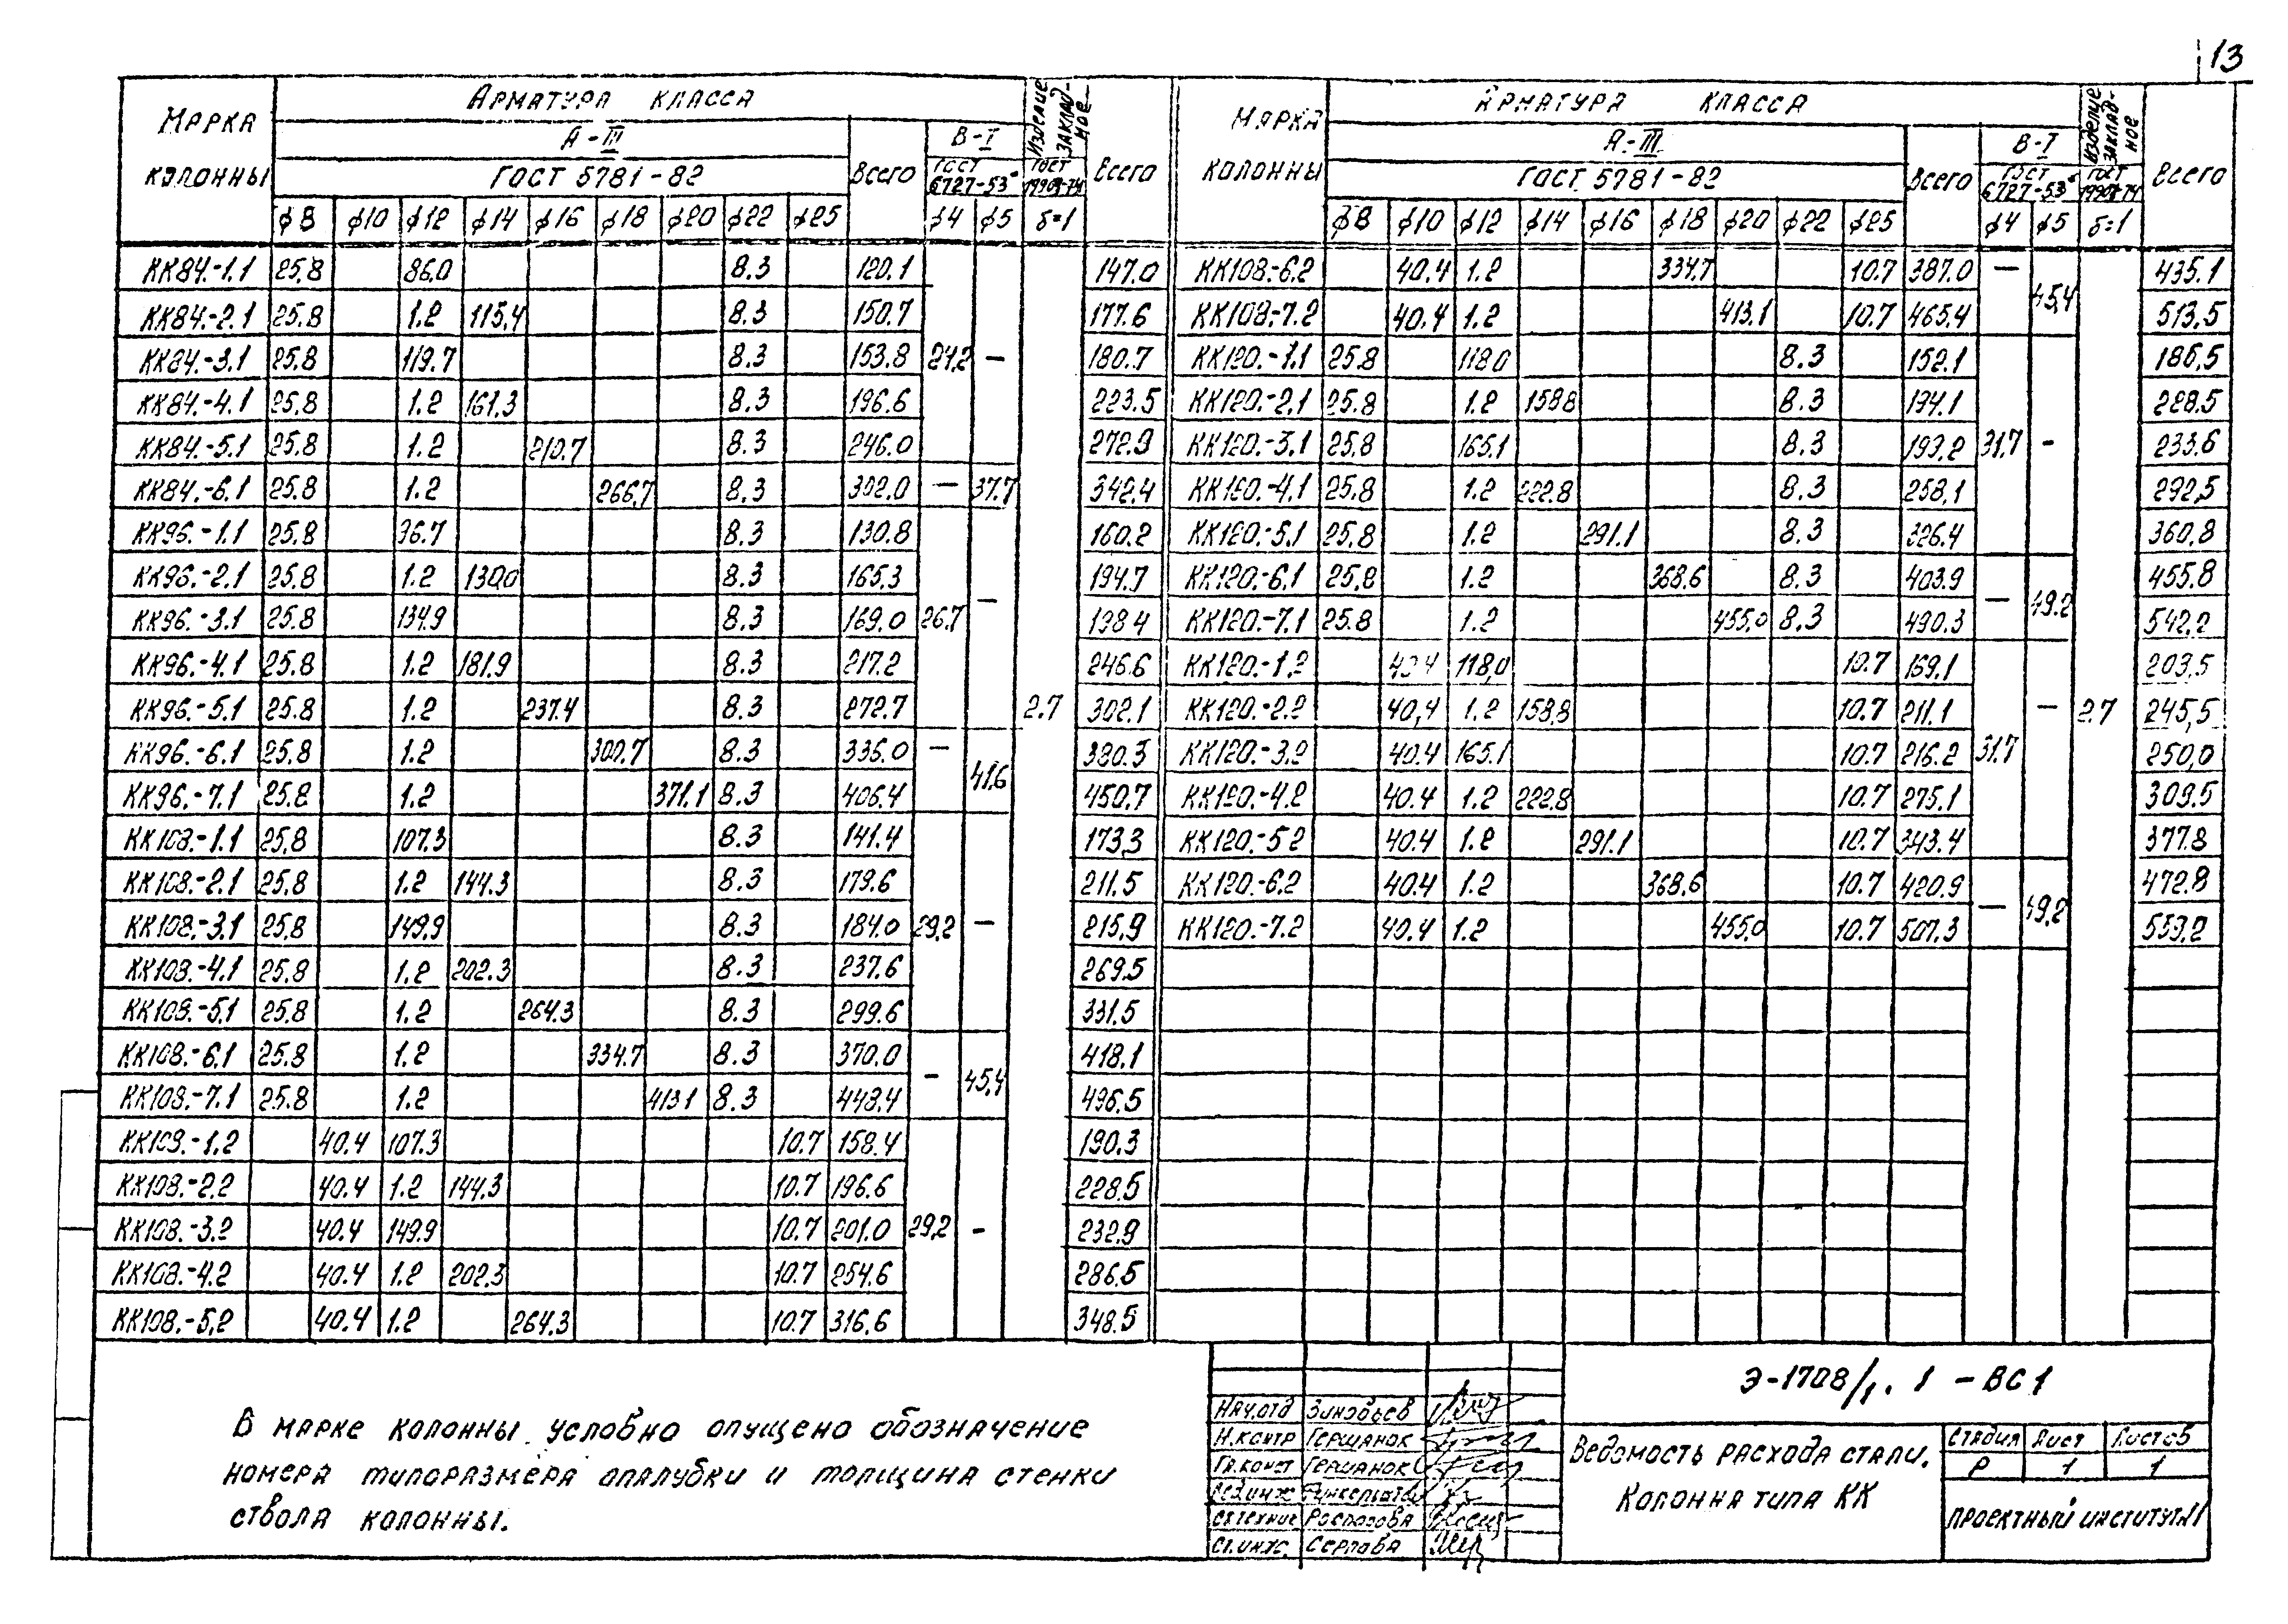 13
Марка колонны Арматура класса Изделие закладное Всего
А-III Всего В-I
ГОСТ 5781-82 ГОСТ 6727-53* ГОСТ 19903-74
ϕ8 ϕ10 ϕ12 ϕ14 ϕ16 ϕ18 ϕ20 ϕ22 ϕ25 ϕ4 ϕ5 δ=1
КК84.-1.1 25.8 86.0 8.3 120.1 147.0
КК84.-2.1 25.8 1.2 115.4 8.3 150.7 177.6
КК84.-3.1 25.8 119.7 8.3 153.8 24,2 – 180.7
КК84.-4.1 25.8 1.2 161.3 8.3 196.6 223.5
КК84.-5.1 25.8 1.2 210.7 8.3 246.0 272.9
КК84.-6.1 25.8 1.2 266.7 8.3 302.0 – 37.7 342.4
КК96.-1.1 25.8 96.7 8.3 130.8 160.2
КК96.-2.1 25.8 1.2 130.0 8.3 165.3 – 194.7
КК96.-3.1 25.8 134.9 8.3 169.0 26.7 198.4
КК96.-4.1 25.8 1.2 181.9 8.3 217.2 246.6
КК96.-5.1 25.8 1.2 237.4 8.3 272.7 2.7 302.1
КК96.-6.1 25.8 1.2 300.7 8.3 336.0 – 380.3
КК96.-7.1 25.8 1.2 371.1 8.3 406.4 41.6 450.7
КК108.-1.1 25.8 107.3 8.3 141.4 173.3
КК108.-2.1 25.8 1.2 144.3 8.3 179.6 211.5
КК108.-3.1 25.8 149.9 8.3 184.0 29,2 – 215.9
КК108.-4.1 25.8 1.2 202.3 8.3 237.6 269.5
КК108.-5.1 25.8 1.2 264.3 8.3 299.6 331.5
КК108.-6.1 25.8 1.2 334.7 8.3 370.0 418.1
КК108.-7.1 25.8 1.2 413.1 8.3 448.4 – 45,4 496.5
КК108.-1.2 40.4 107.3 10.7 158.4 190.3
КК108.-2.2 40.4 1.2 144.3 10.7 196.6 228.5
КК108.-3.2 40.4 149.9 10.7 201.0 29,2 – 232.9
КК108.-4.2 40.4 1.2 202.3 10.7 254.6 286.5
КК108.-5.2 40.4 1.2 264.3 10.7 316.6 348.5
Марка колонны Арматура класса Изделие закладное Всего
А-III Всего В-I
ГОСТ 5781-82 ГОСТ 6727-53* ГОСТ 19903-74
ϕ8 ϕ10 ϕ12 ϕ14 ϕ16 ϕ18 ϕ20 ϕ22 ϕ25 ϕ4 ϕ5 δ=1
КК108.-6.2 40.4 1.2 334.7 10.7 387.0 – 435.1
КК108.-7.2 40.4 1.2 413.1 10.7 465.4 45,4 513.5
КК120.-1.1 25.8 118.0 8.3 152.1 186.5
КК120.-2.1 25.8 1.2 158.8 8.3 194.1 228.5
КК120.-3.1 25.8 165.1 8.3 199.2 31.7 – 233.6
КК120.-4.1 25.8 1.2 222.8 8.3 258.1 292.5
КК120.-5.1 25.8 1.2 291.1 8.3 326.4 360.8
КК120.-6.1 25.8 1.2 368.6 8.3 403.9 455.8
КК120.-7.1 25.8 1.2 455.0 8.3 490.3 – 49.2 542.2
КК120.-1.2 40.4 118.0 10.7 169.1 203.5
КК120.-2.2 40.4 1.2 158.8 10.7 211.1 – 2.7 245,5
КК120.-3.2 40.4 165.1 10.7 216.2 31.7 250,0
КК120.-4.2 40.4 1.2 222.8 10.7 275.1 309.5
КК120.-5.2 40.4 1.2 291.1 10.7 343.4 377.8
КК120.-6.2 40.4 1.2 368.6 10.7 420.9 472.8
КК120.-7.2 40.4 1.2 455.0 10.7 507.3 – 49,2 559.2
В марке колонны условно опущено обозначение
номера типоразмера опалубки и толщина стенки
ствола колонны.
Нач.отд Зиновьев
Н.контр Гершанок
Гл.конст Гершанок
Вед.инж
Ст.техник
Ст.инж. Серпова
Э-1708/1. 1 - ВС1
Ведомость расхода стали.
Колонна типа КК
Стадия Лист Листов
Р 1 1
Проектный институт №1